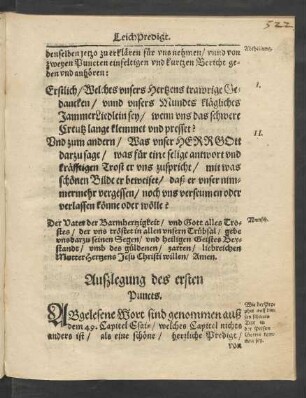 522
LeichPredigt.
denselben jetzo zu erklären für uns nehmen / vnnd von
zweyen Puncten einfeltigen vnd kurtzen Bericht ge-
ben vnd anhören:
Abtheilung.
Erstlich / Welches vnsers Hertzens trawrige Ge-
dancken / vnnd vnsers Mundes klägliches
JammerLiedlein sey / wenn vns das schwere
Creutz lange klemmet vnd presset?
I.
Vnd zum andern / Was vnser HERR GOtt
darzu sage / was für eine selige antwort vnd
kräfftigen Trost er vns zuspricht / mit was
schönen Bilde er beweiset / daß er vnser nim-
mermehr vergessen / noch vns verseumen oder
verlassen könne oder wölle?
II.
Der Vater der Barmhertzigkeit / vnd Gott alles Tro-
stes / der vns tröstet in allen vnsern Trübsal / gebe
vns darzu seinen Segen / vnd heiligen Geistes Bey-
standt / vmb des güldenen / zarten / liebreichen
Mutter Hertzens Jesu Christi willen / Amen.
Wunsch.
Außlegung des ersten
Puncts.
ABgelesene Wort sind genommen auß
dem 49. Capitel Esaiæ / welches Capitel nichts
anders ist / als eine schöne / herrliche Predigt /
von